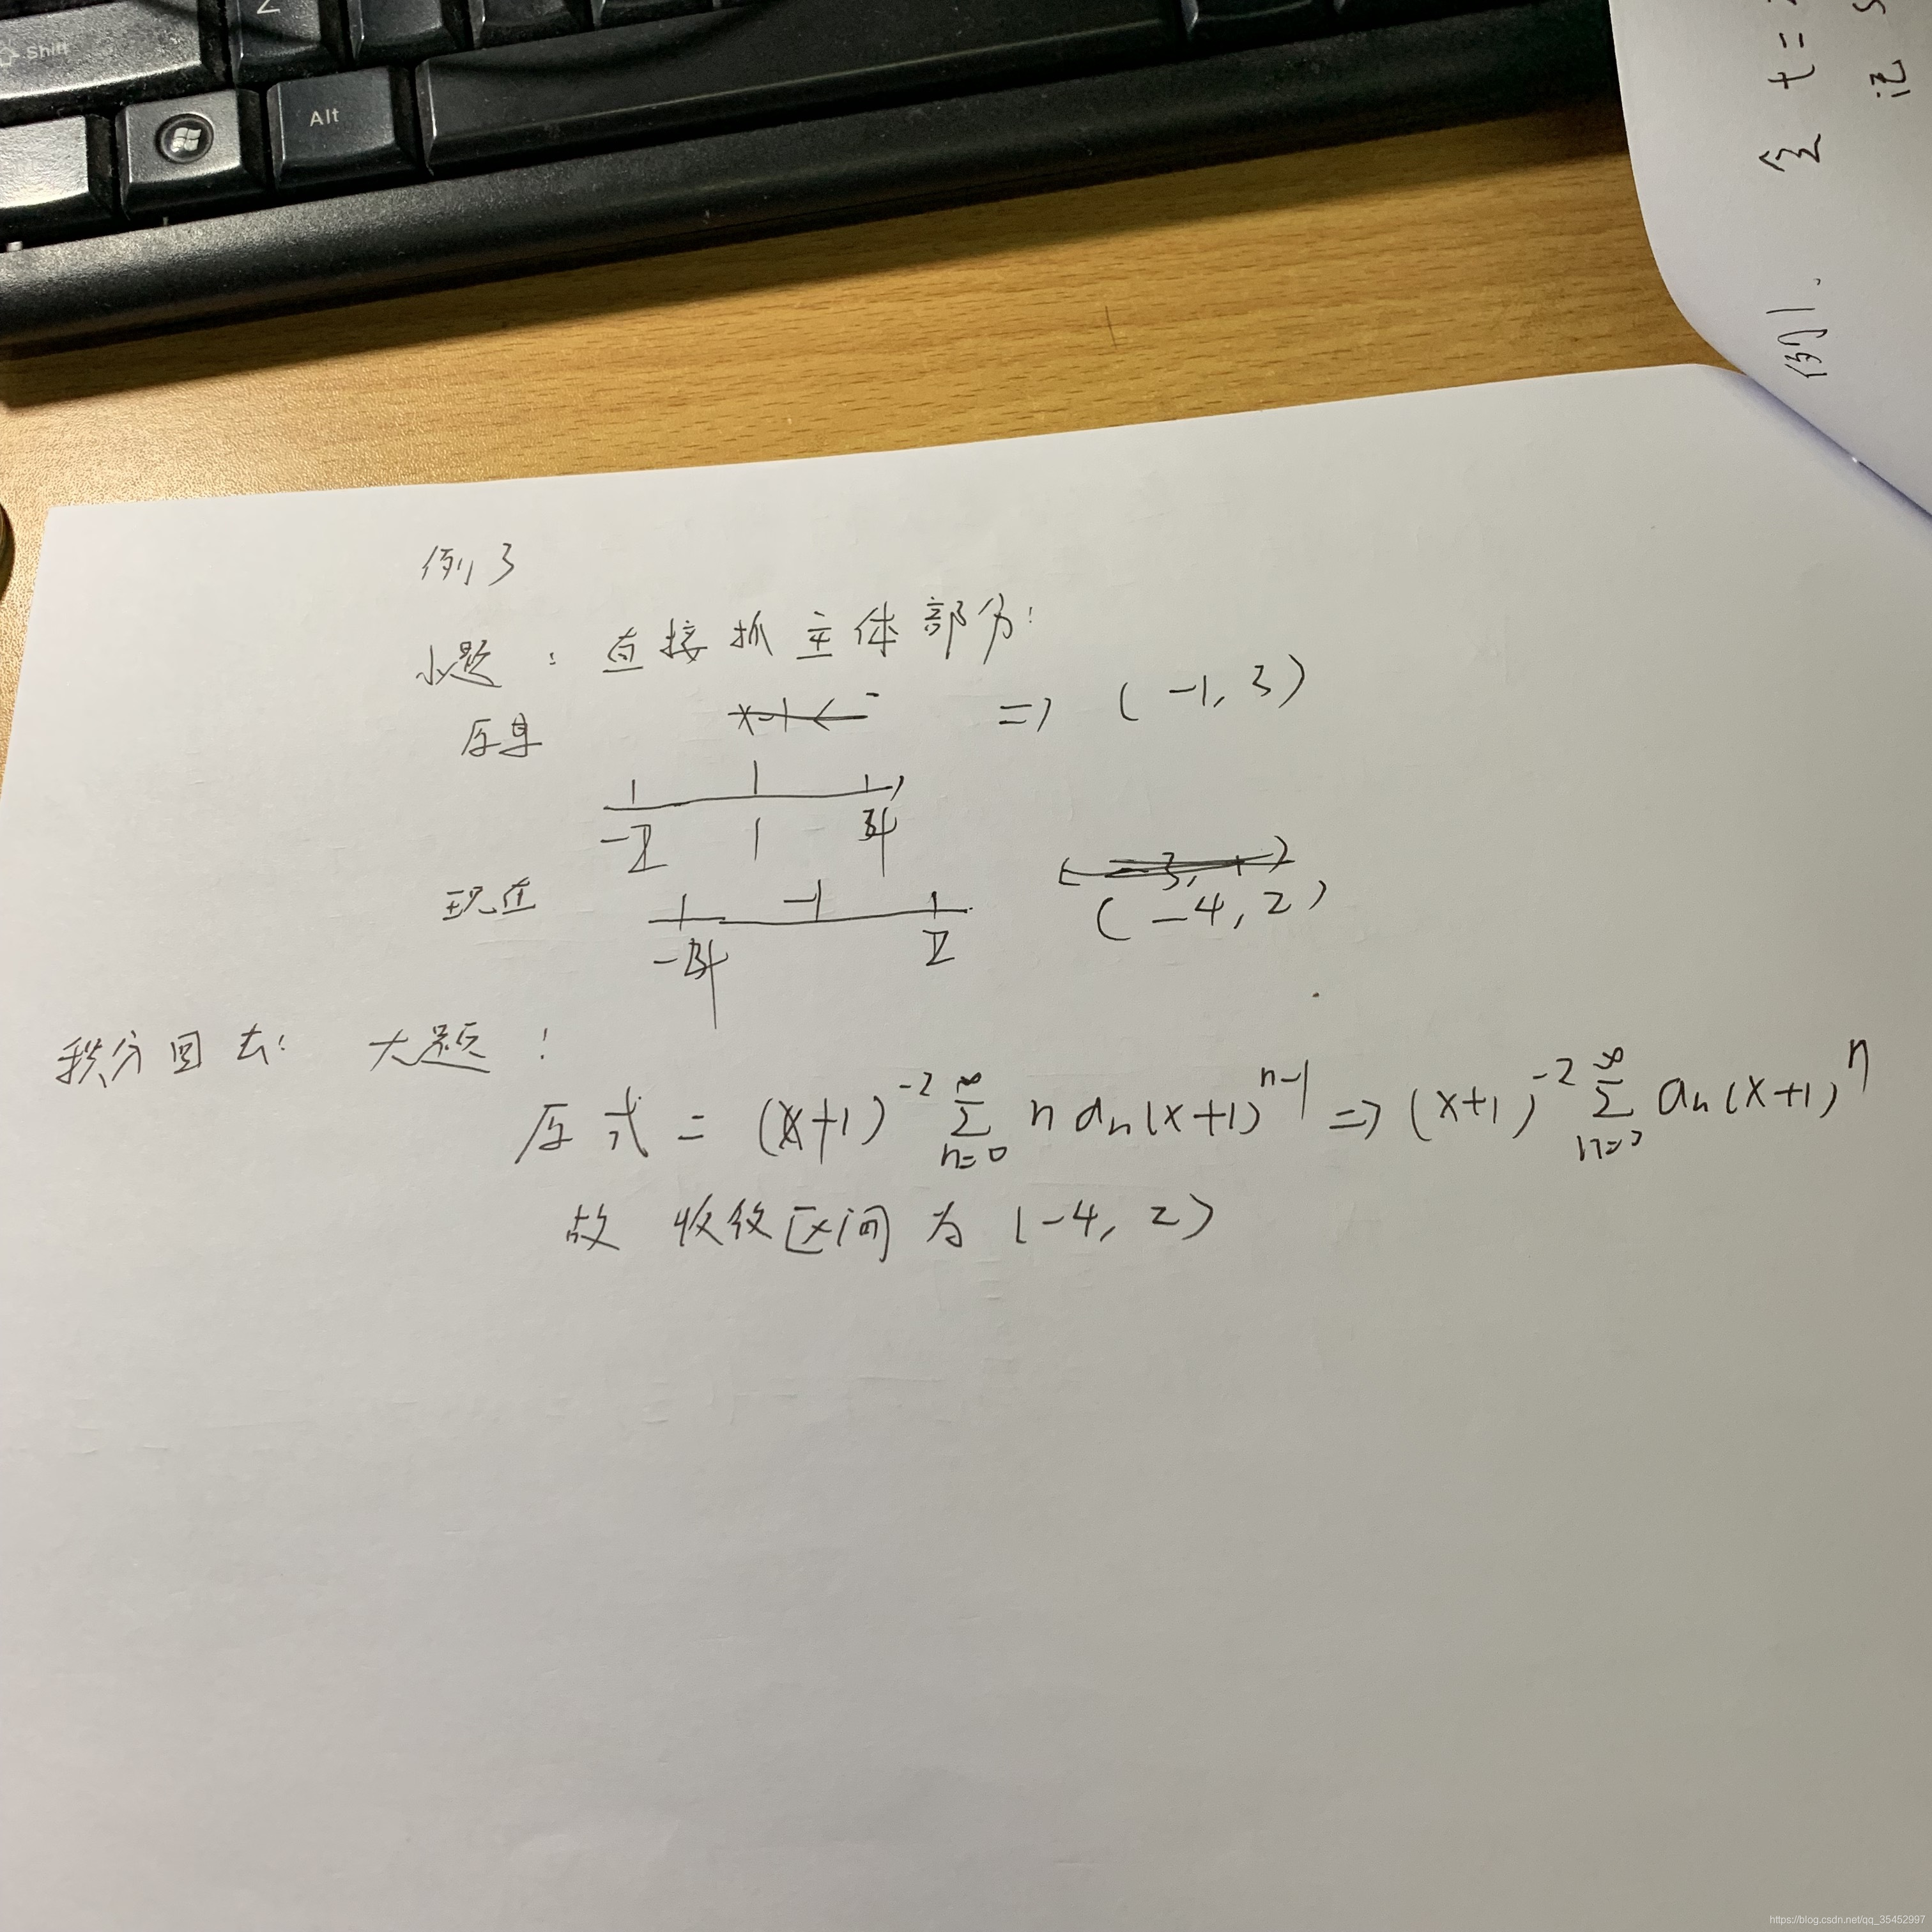 Shift
Z
Alt
例1.
令 t=
记 S
例3
小题: 直接抓主体部分:
原身 x-1< => (-1, 3)
-2 1 4
现在 -1 (-3, 1)
-4 2 (-4, 2)
积分回去: 大题:
原式 = (x+1)^{-2} ∑_{n=0}^{∞} n a_n (x+1)^{n-1} => (x+1)^{-2} ∑_{n=0}^{∞} a_n (x+1)^n
故 收敛区间为 (-4, 2)
https://blog.csdn.net/qq_35452997